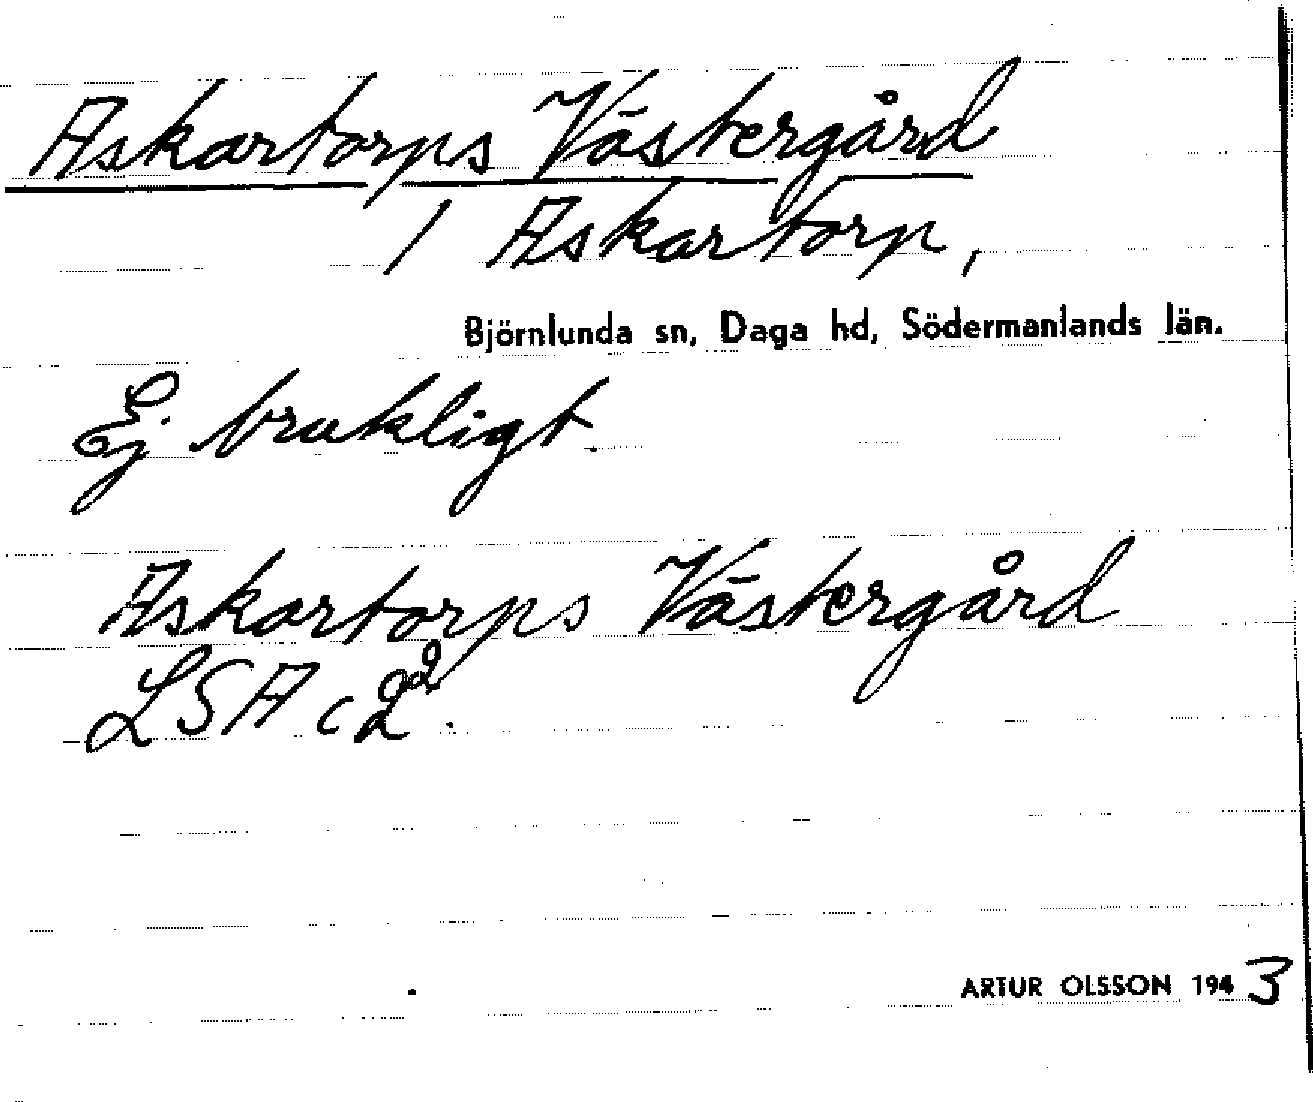 Askartorps Västergård
/ Askartorp,
Björnlunda sn, Daga hd, Södermanlands län.
Ej brukligt.
Askartorps Västergård
LSA c 2².
ARTUR OLSSON 1943